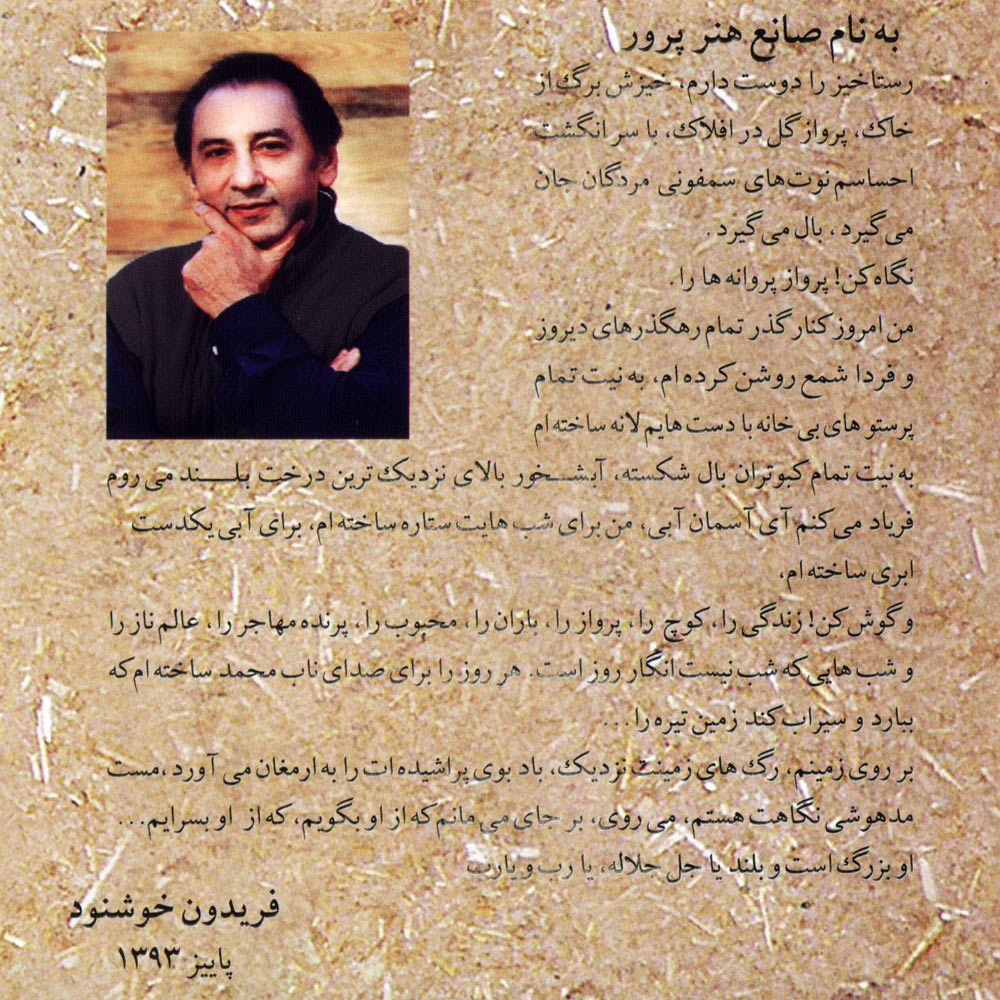 به نام صانع هنر پرور
رستاخیز را دوست دارم، خیزش برگ از
خاک، پرواز گل در افلاک، با سر انگشت
احساسم نوت‌های سمفونی مردگان جان
می‌گیرد، بال می‌گیرد.
نگاه کن! پرواز پروانه ها را.
من امروز کنار گذر تمام رهگذرهای دیروز
و فردا شمع روشن کرده ام، به نیت تمام
پرستو های بی خانه با دست هایم لانه ساخته ام
به نیت تمام کبوتران بال شکسته، آبشخور بالای نزدیک ترین درخت بلند می روم
فریاد می کنم آی آسمان آبی، من برای شب هایت ستاره ساخته ام، برای آبی یکدست
ابری ساخته ام،
و گوش کن! زندگی را، کوچ را، پرواز را، باران را، محبوب را، پرنده مهاجر را، عالم ناز را
و شب هایی که شب نیست انگار روز است. هر روز را برای صدای ناب محمد ساخته ام که
ببارد و سیراب کند زمین تیره را...
بر روی زمینم، رگ های زمینت نزدیک، باد بوی پراشیده ات را به ارمغان می آورد، مست
مدهوشی نگاهت هستم، می روی، بر جای می مانم که از او بگویم، که از او بسرایم...
او بزرگ است و بلند یا جل جلاله، یا رب و یارب
فریدون خوشنود
پاییز ۱۳۹۳